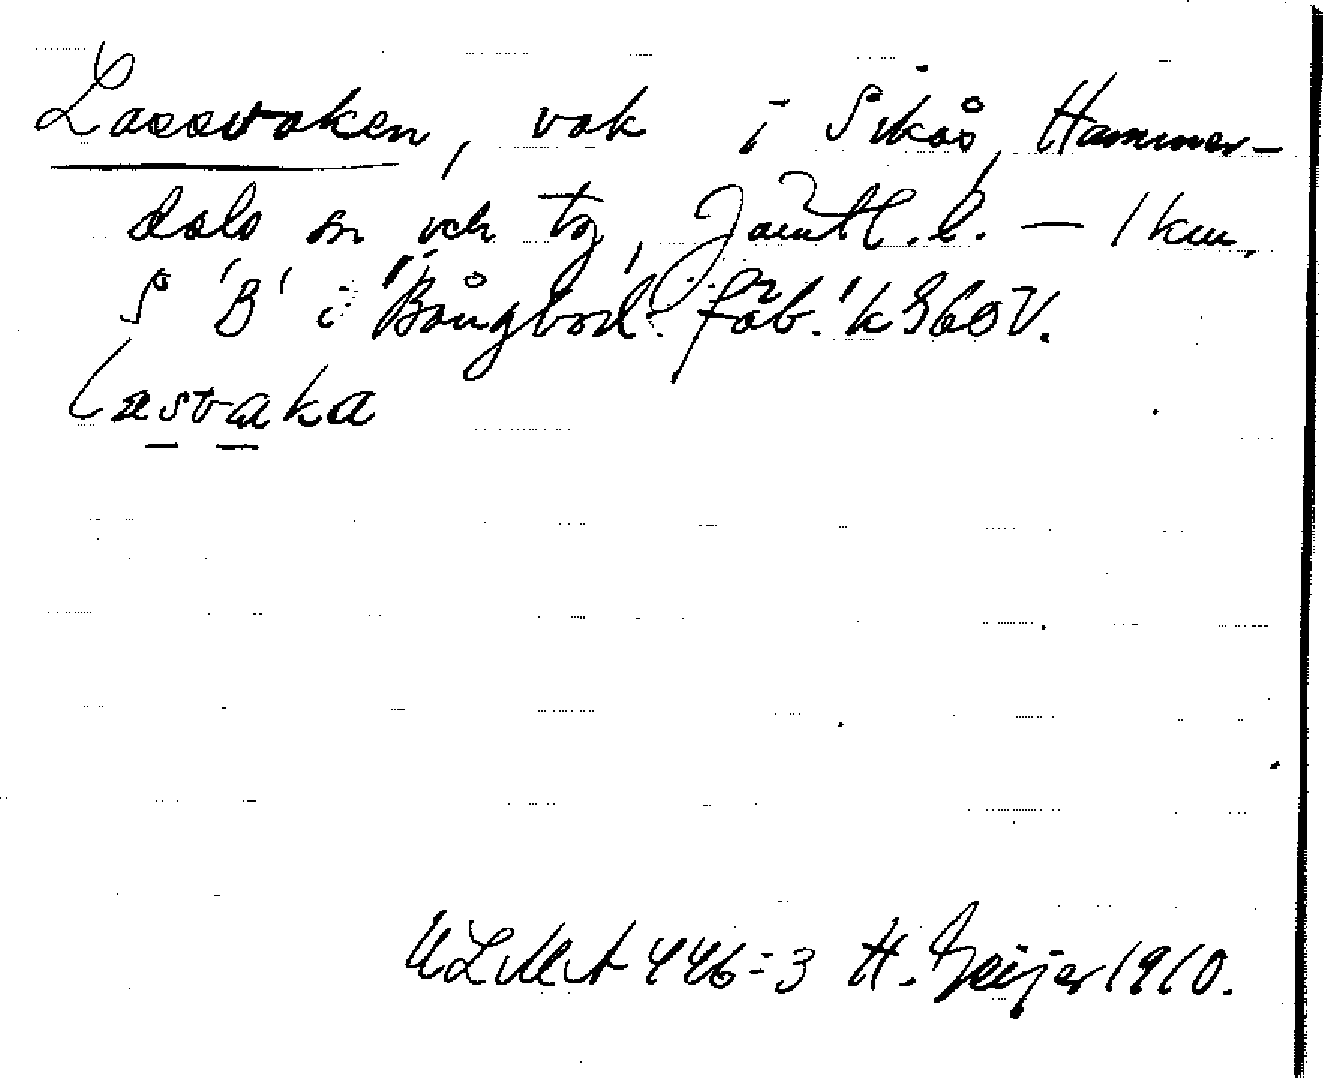 Lassvaken, vak i Sikås, Hammer-
dals sn och tg, Jämtl. l. – 1 km.
S 'B' i "Bångbod. fäb." k 360 V.
lasvaka
ULMA 446:3 H. Geijer 1910.